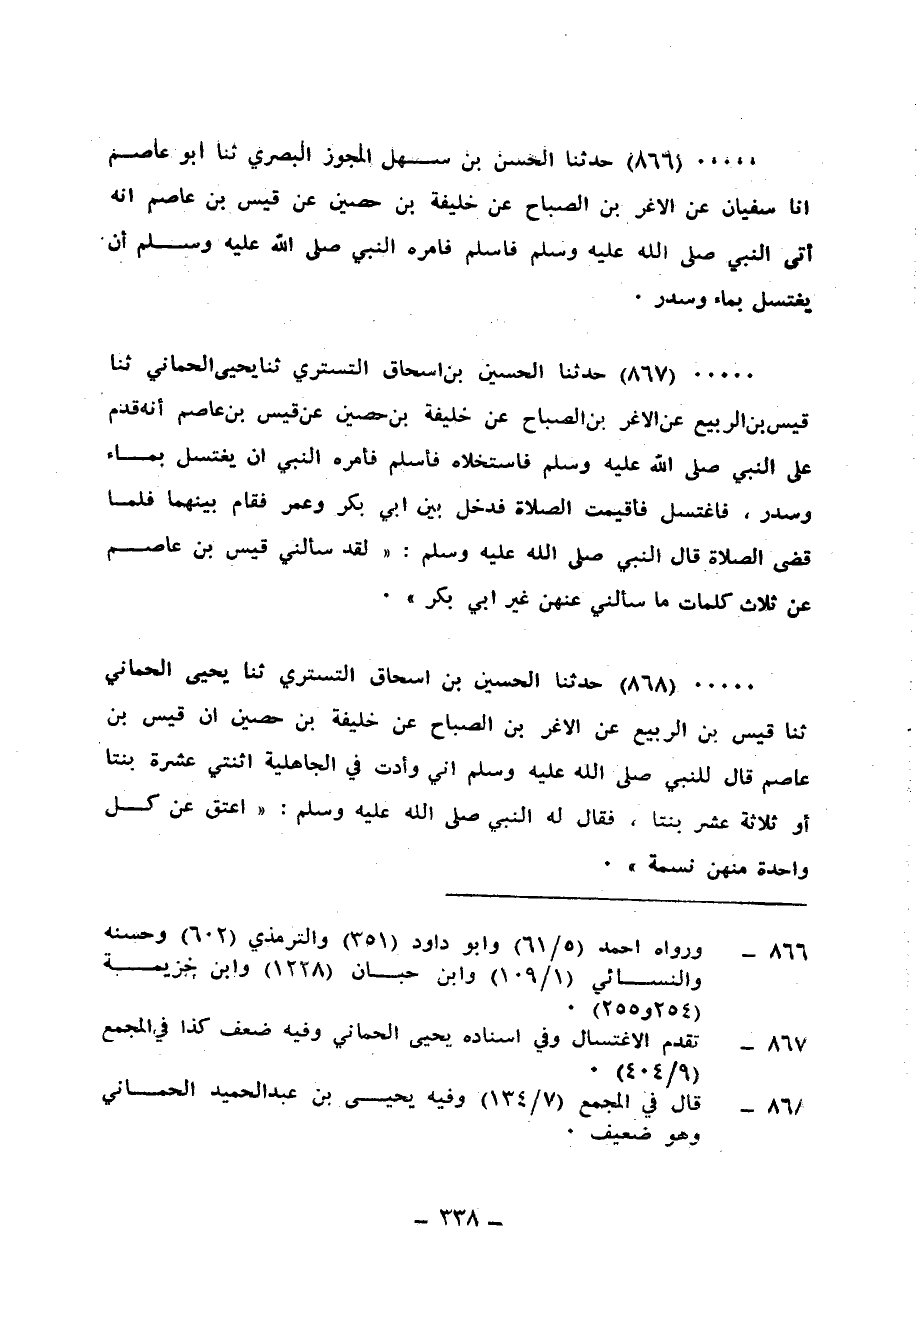 ٠٠٠٠٠ (٨٦٦) حدثنا الحسن بن سهل المجوز البصري ثنا ابو عاصم
انا سفيان عن الاغر بن الصباح عن خليفة بن حصين عن قيس بن عاصم انه
أتى النبي صلى الله عليه وسلم فاسلم فامره النبي صلى الله عليه وسلم أن
يغتسل بماء وسدر ٠
٠٠٠٠٠ (٨٦٧) حدثنا الحسين بن اسحاق التستري ثنا يحيى الحماني ثنا
قيس بن الربيع عن الاغر بن الصباح عن خليفة بن حصين عن قيس بن عاصم أنه قدم
على النبي صلى الله عليه وسلم فاستخلاه فأسلم فأمره النبي ان يغتسل بماء
وسدر ، فاغتسل فأقيمت الصلاة فدخل بين ابي بكر وعمر فقام بينهما فلما
قضى الصلاة قال النبي صلى الله عليه وسلم : « لقد سألني قيس بن عاصم
عن ثلاث كلمات ما سألني عنهن غير ابي بكر » ٠
٠٠٠٠٠ (٨٦٨) حدثنا الحسين بن اسحاق التستري ثنا يحيى الحماني
ثنا قيس بن الربيع عن الاغر بن الصباح عن خليفة بن حصين ان قيس بن
عاصم قال للنبي صلى الله عليه وسلم اني وأدت في الجاهلية اثنتي عشرة بنتا
أو ثلاثة عشر بنتا ، فقال له النبي صلى الله عليه وسلم : « اعتق عن كل
واحدة منهن نسمة » ٠
٨٦٦ – ورواه احمد (٦١/٥) وابو داود (٣٥١) والترمذي (٦٠٢) وحسنه
والنسائي (١٠٩/١) وابن حبان (١٢٢٨) وابن خزيمة
(٢٥٤و٢٥٥) ٠
٨٦٧ – تقدم الاغتسال وفي اسناده يحيى الحماني وفيه ضعف كذا في المجمع
(٤٠٤/٩) ٠
٨٦/ – قال في المجمع (١٣٤/٧) وفيه يحيى بن عبدالحميد الحماني
وهو ضعيف ٠
– ٣٣٨ –